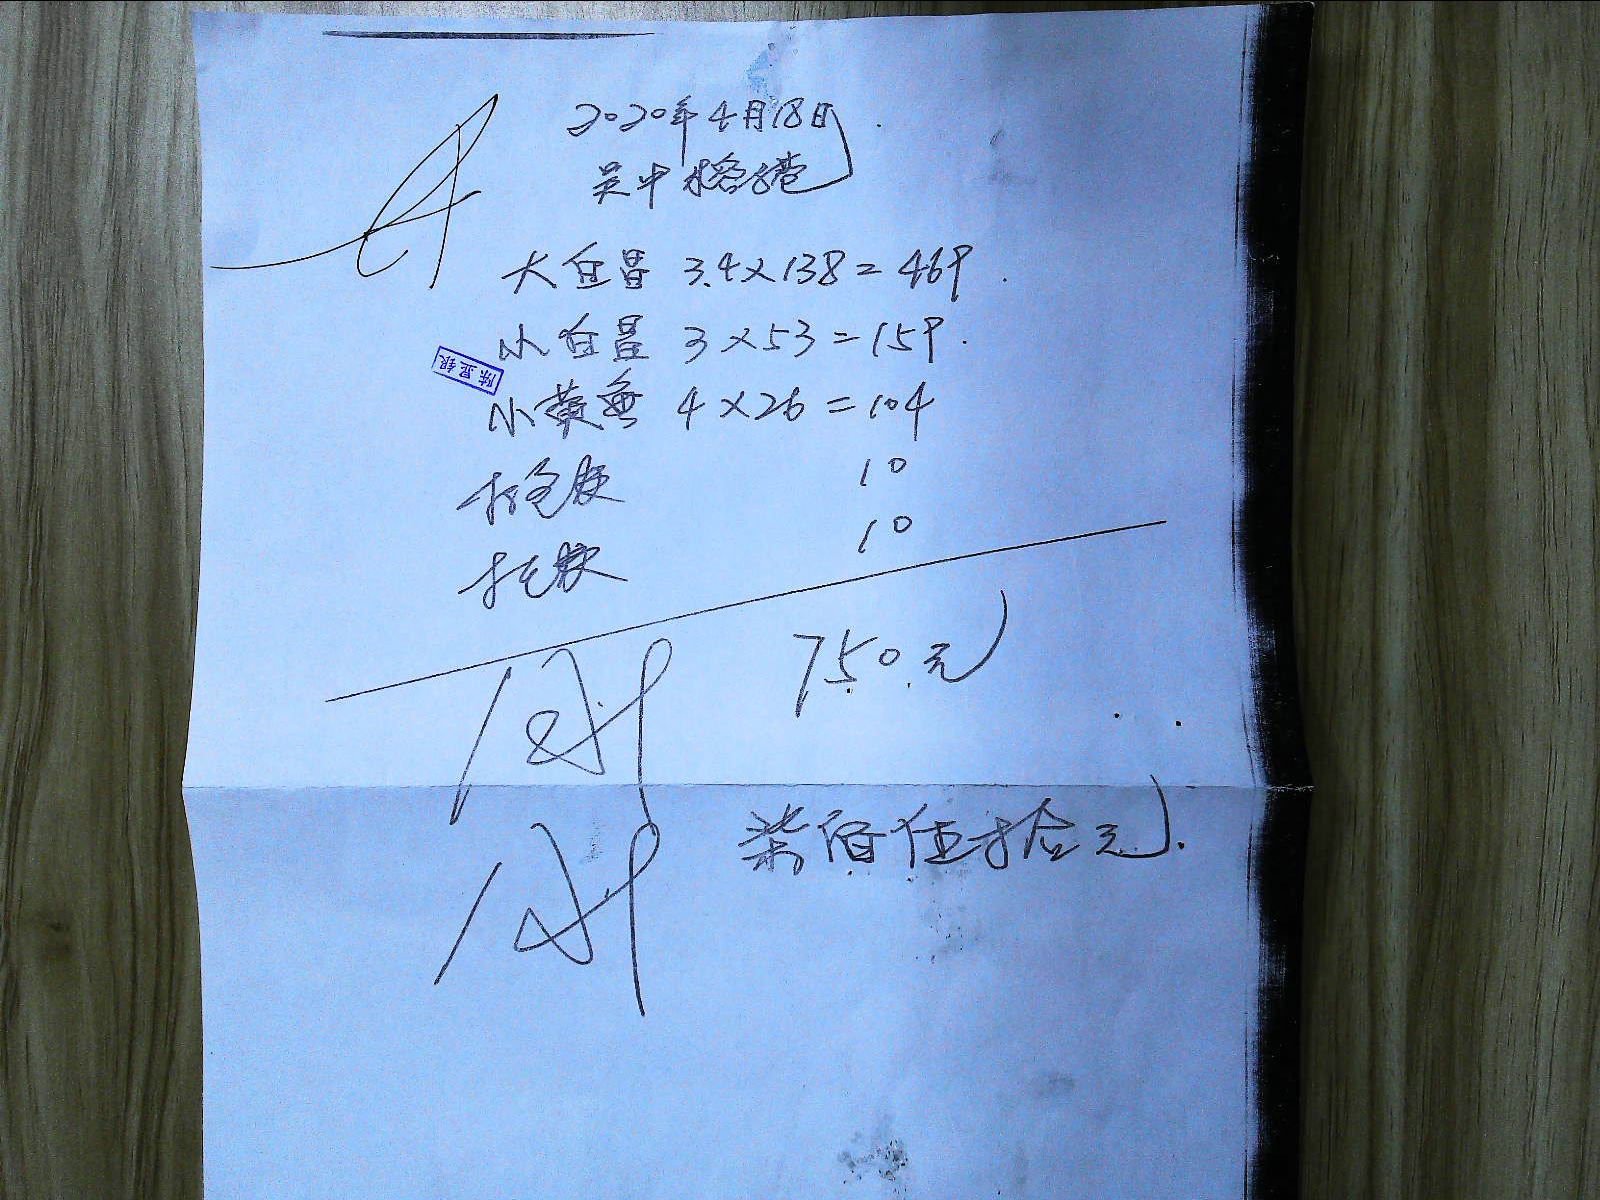 2020年4月18日
吴中榕港
大白昌 3.4×138=469
小白昌 3×53=159.
陈显银
小黄鱼 4×26=104
打包费 10
打包费 10
750元
柒佰伍拾元.